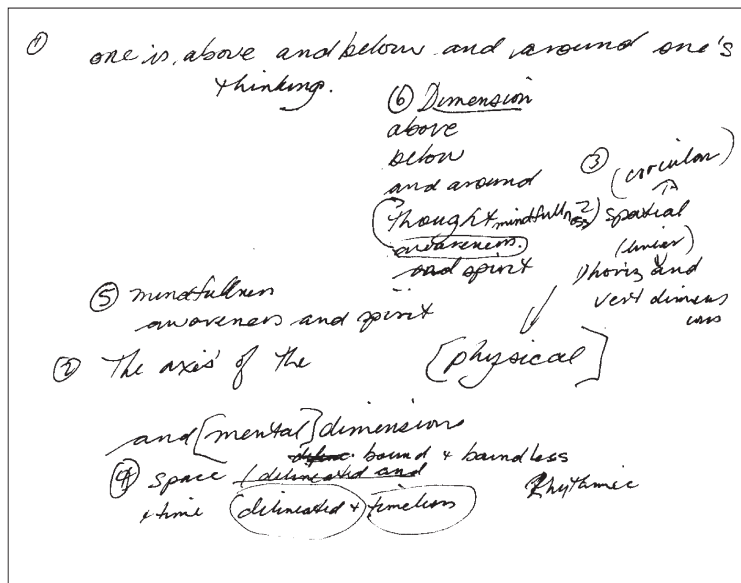 ① one is above and below and around one's
thinking.
⑥ Dimension
above
below
and around
(thought + mindfullness)
awareness.
and spirit
③ (circular)
spatial
(linear)
horiz and
vert dimens
ions
⑤ mindfullness
awareness and spirit
② The axis of the [physical]
and [mental] dimensions
define bound + boundless
④ space / delineated and
+ time (delineated + timeless)
Rhythmic